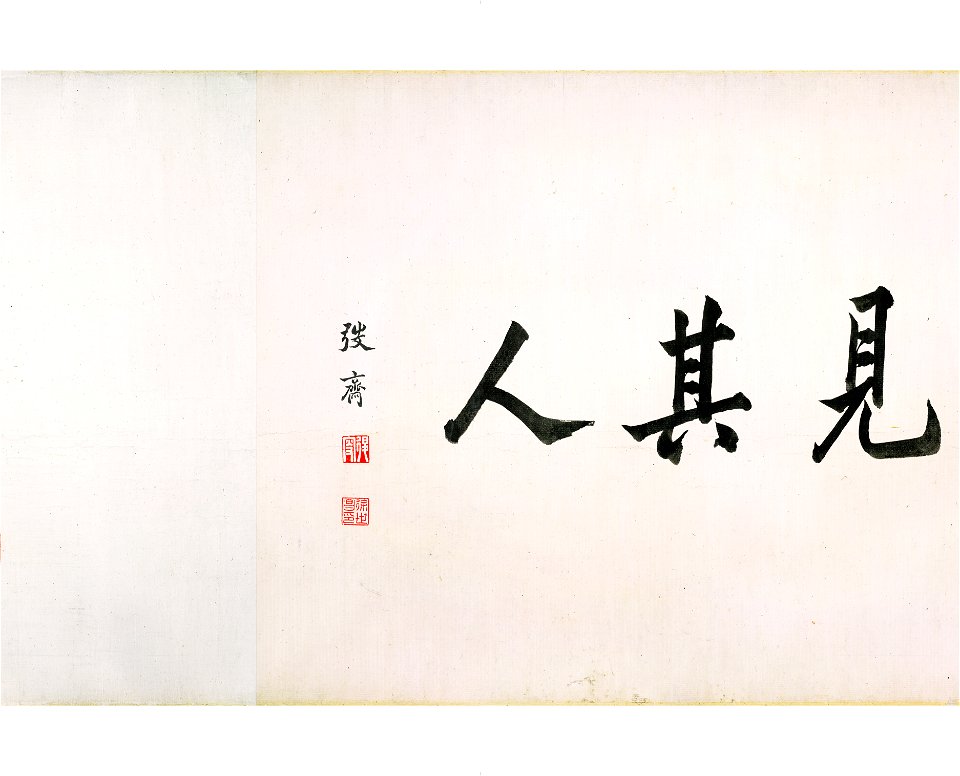 見其人
弢齋